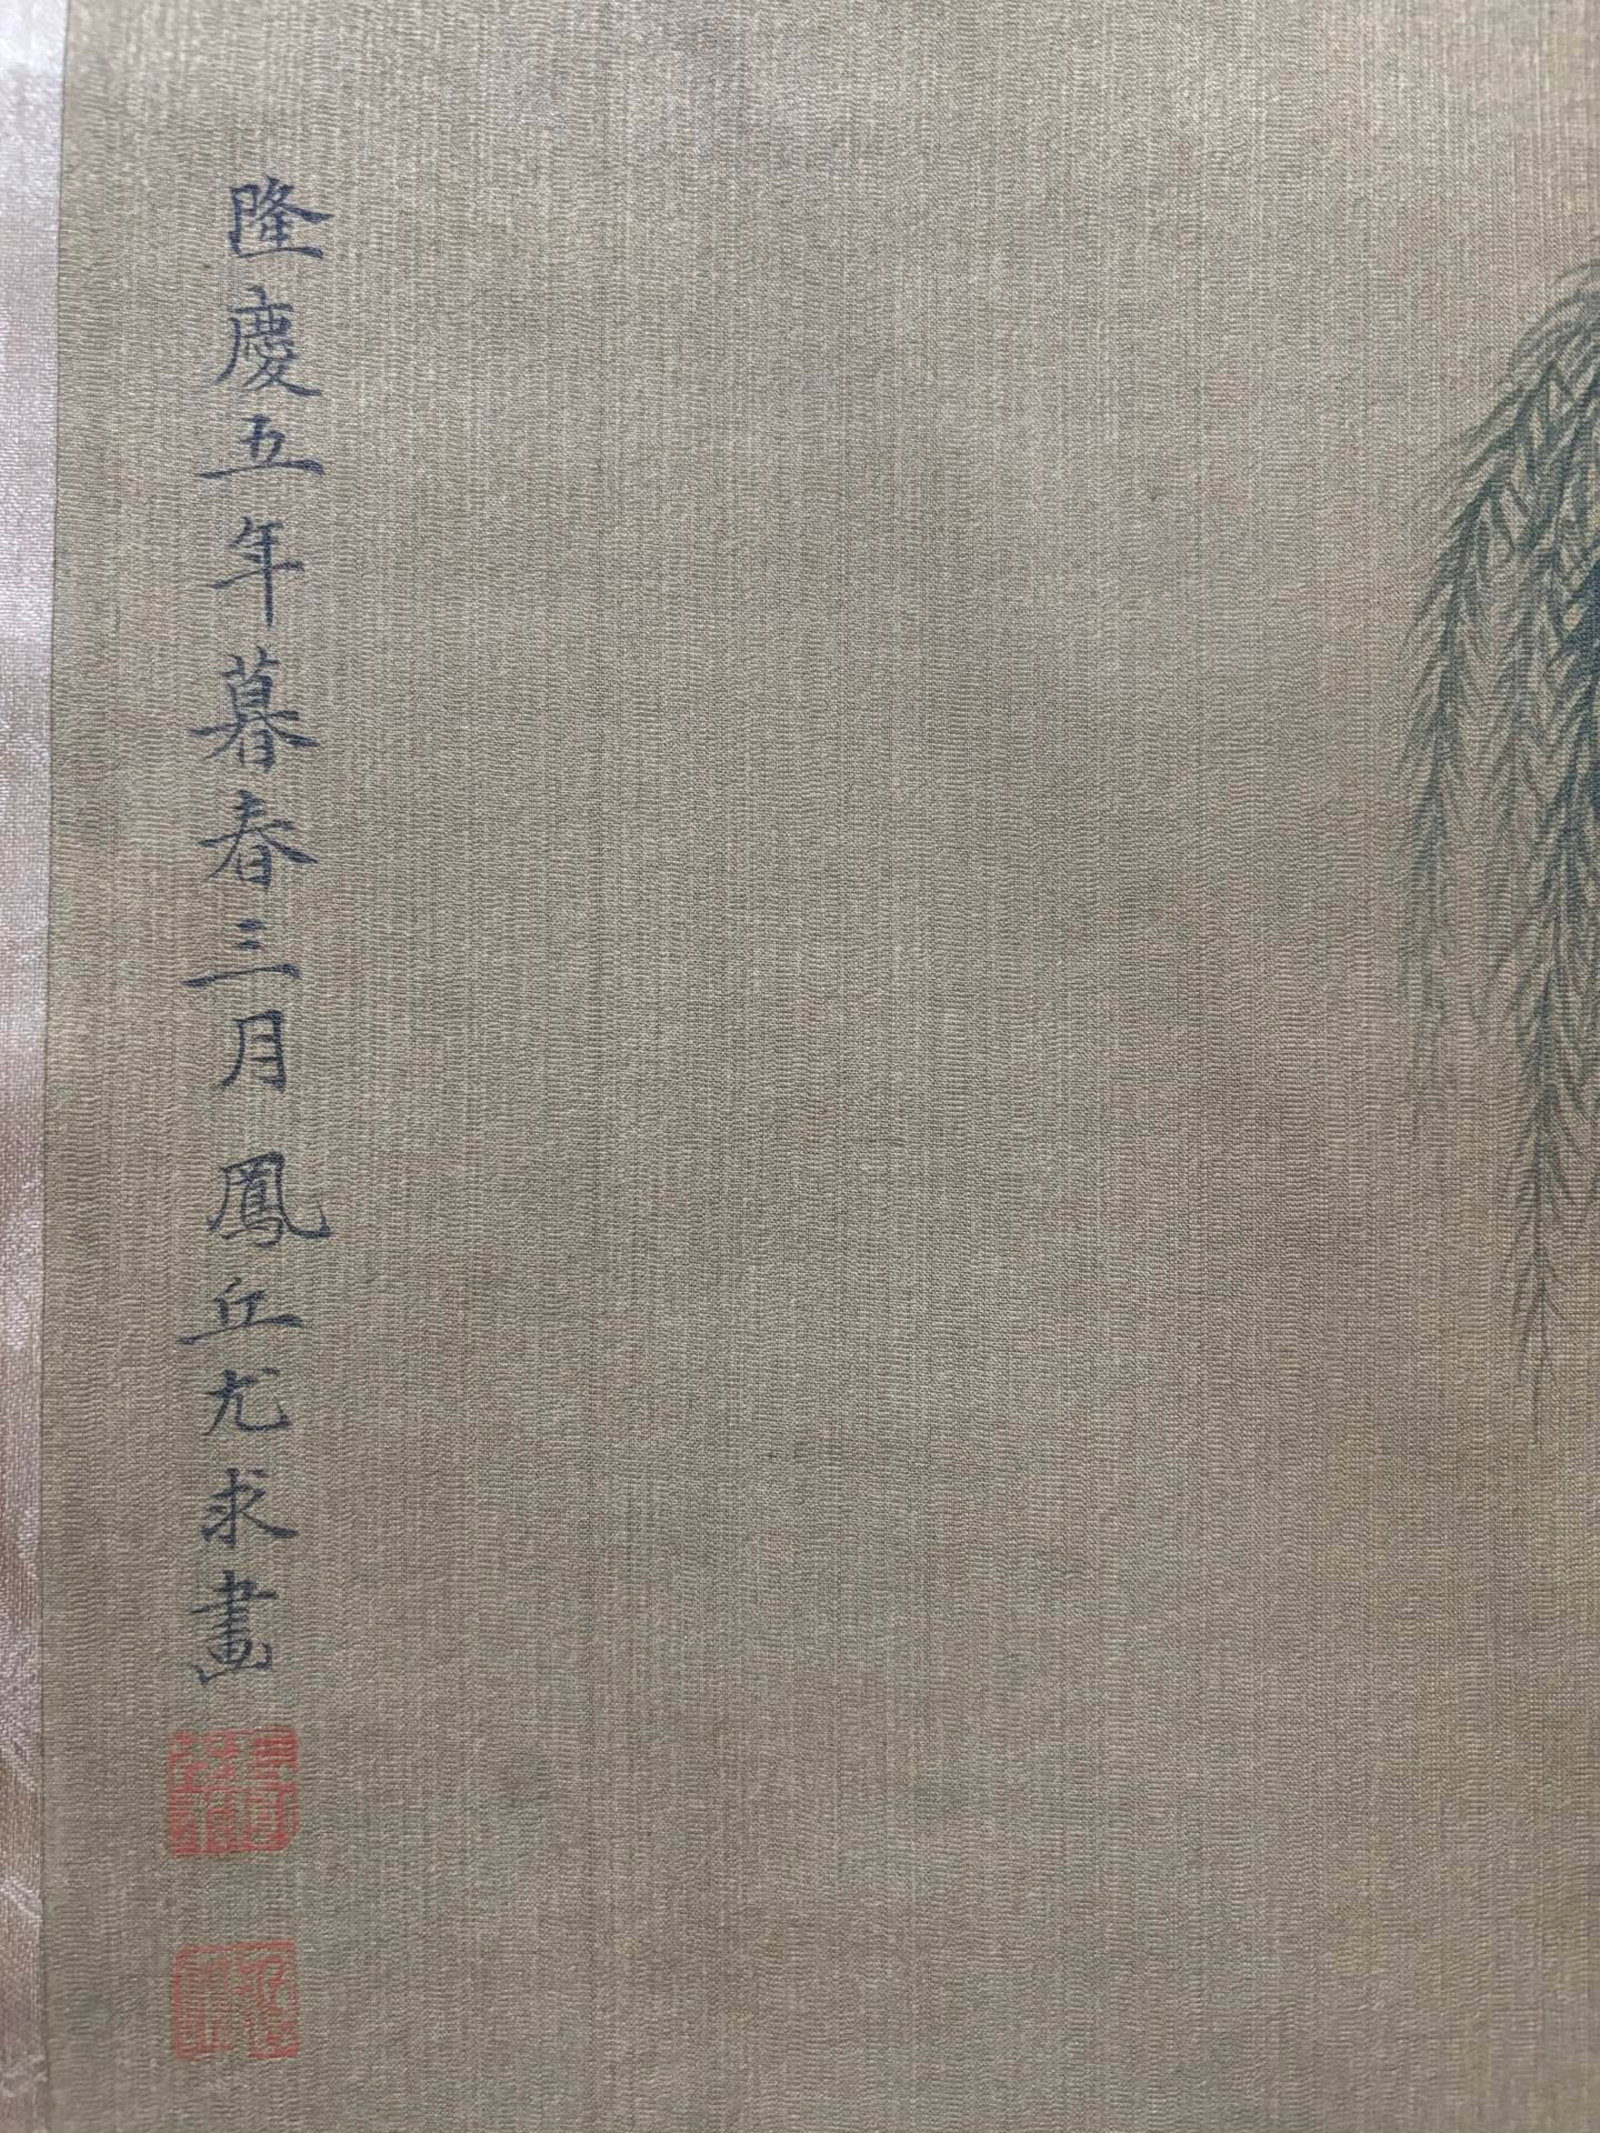 隆慶五年暮春三月鳳丘尤求畫